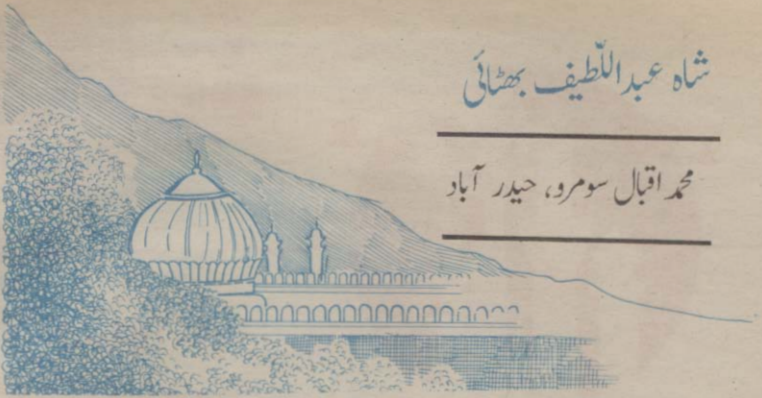 شاہ عبد اللّطیف بھٹائی
محمد اقبال سومرو، حیدر آباد